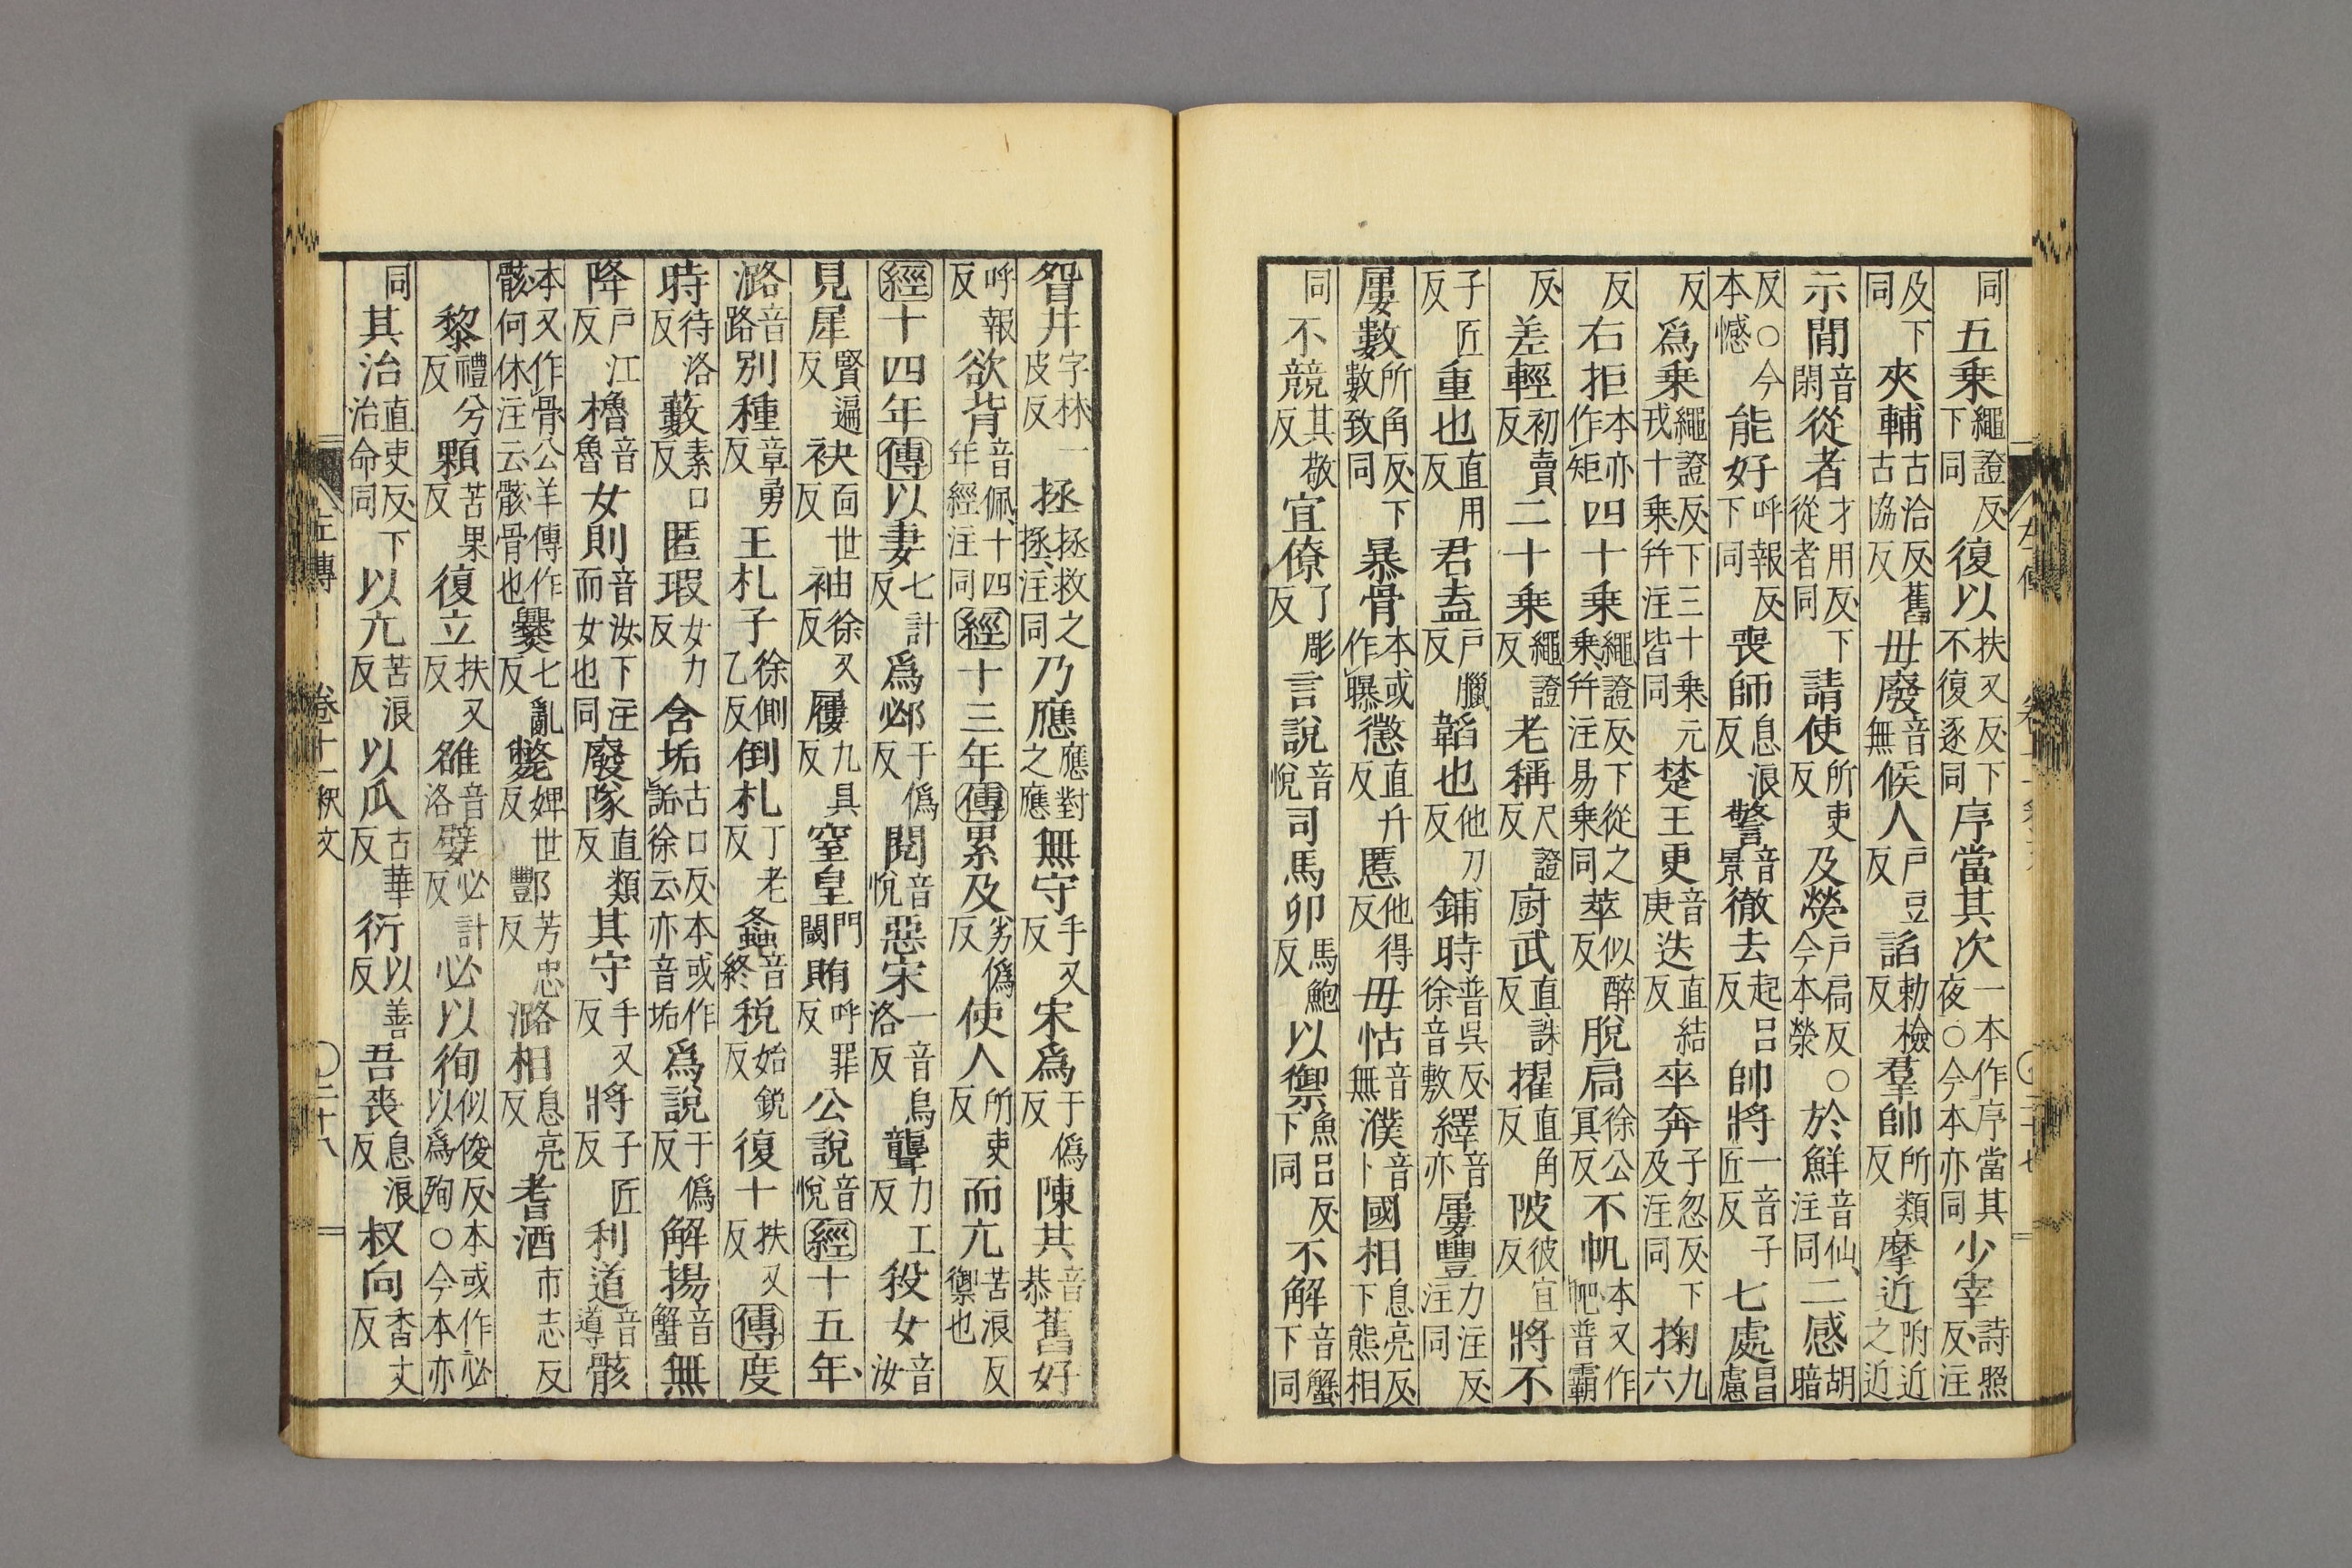 同五乗繩證反下同復以扶又反下不復逐同序當其次一本作序當其夜○今本亦同少宰詩照反注
及下同夾輔古洽反舊古協反毋廢音無候人戶豆反諂勅檢反羣帥所類反摩近附近之近
示閒音閑從者才用反下從者同請使所吏反及熒戶扃反○今本滎於鮮音仙注同二感胡暗
反○今本憾能好呼報反下同喪師息浪反警音景徹去起呂反帥將一音子匠反七處昌慮
反爲乗繩證反下三十乗元戎十乗幷注皆同楚王更音庚迭直結反卒奔子忽反下及注同掬九六
反右拒本亦作矩四十乗繩證反下從之乗幷注易乗同萃似醉反脫扃徐公冥反不帆本又作㠶普霸
反差輕初賣反二十乗繩證反老稱尺證反廚武直誅反擢直角反陂彼宜反將不
子匠反重也直用反君盍戶臘反韜也他刀反鋪時普吳反徐音敷繹音亦屢豐力注反注同
屢數所角反下數致同暴骨本或作曝懲直升反慝他得反毋怙音無濮音卜國相息亮反下熊相
同不競其敬反宜僚了彫反言說音悅司馬卯馬鮑反以禦魚呂反下同不解音蟹下同
眢井字林一皮反拯拯救之拯注同乃應應對之應無守手又反宋爲于僞反陳共音恭舊好
呼報反欲背音佩十四年經注同經十三年傳累及劣僞反使人所吏反而亢苦浪反禦也
經十四年傳以妻七計反爲邲于僞反閱音悅惡宋一音烏洛反聾力工反殺女音汝
見犀賢遍反袂面世反袖徐又反屨九具反窒皇門闑賄呼罪反公說音悅經十五年
潞音路別種章勇反王札子徐側乙反倒札丁老反螽音終稅始銳反復十扶又反傳度
時待洛反藪素口反匿瑕女力反含垢古口反本或作詬徐云亦音垢爲說于僞反解揚音蟹無
降戶江反櫓音魯女則音汝下注而女也同廢隊直類反其守手又反將子匠反利道音導骸
本又作骨公羊傳作骸何休注云骸骨也爨七亂反斃婢世反酆芳忠反潞相息亮反耆酒市志反
黎禮兮反顆苦果反復立扶又反雒音洛嬖必計反必以徇似俊反本或作必以爲殉○今本亦
同其治直吏反下治命同以亢苦浪反以瓜古華反衍以善反吾喪息浪反叔向香丈反
左傳 卷十一釈文 ○二十八